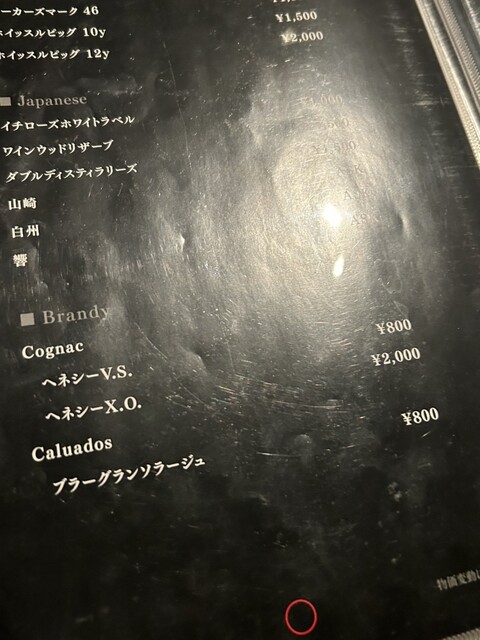 ーカーズマーク 46
ホイッスルピッグ 10y ¥1,500
ホイッスルピッグ 12y ¥2,000
Japanese
イチローズホワイトラベル
ワインウッドリザーブ
ダブルディスティラリーズ
山崎
白州
響
Brandy
Cognac
ヘネシーV.S. ¥800
ヘネシーX.O. ¥2,000
Caluados
ブラーグランソラージュ ¥800
物価変動